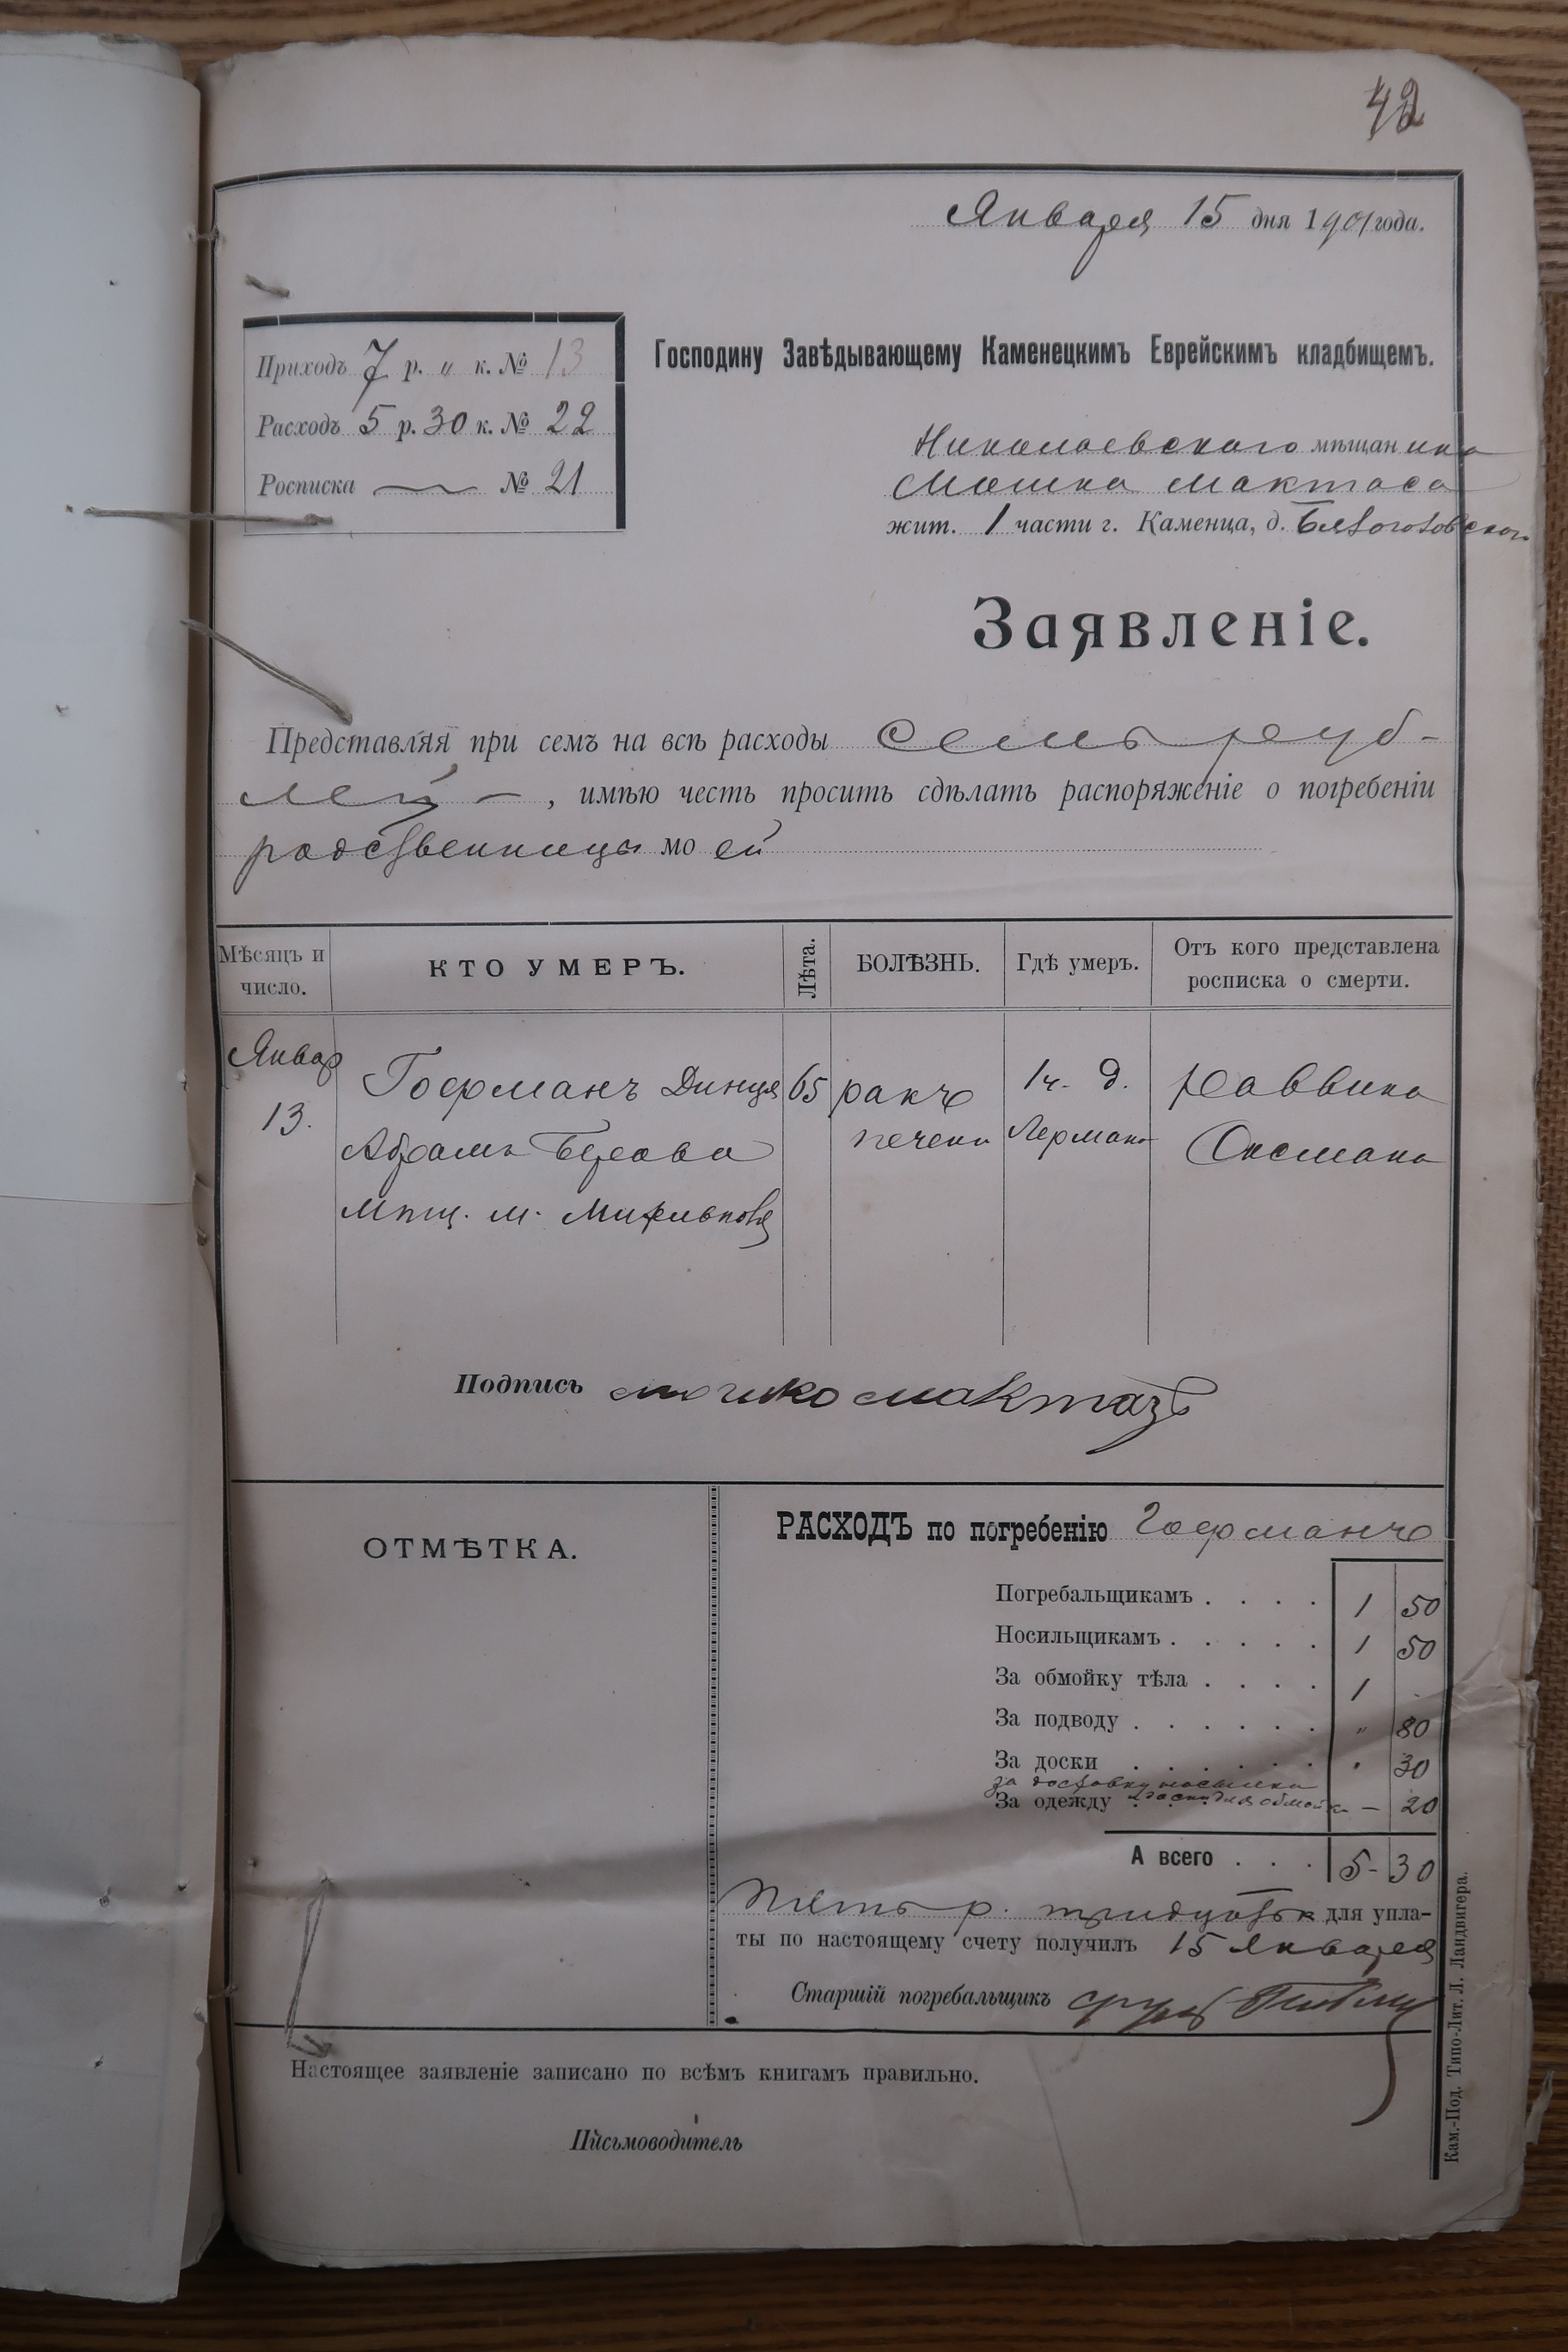 42
Января 15 дня 1901 года.
Приходъ 7 р. „ к. № 13
Расходъ 5 р. 30 к. № 22
Росписка — № 21
Господину Завѣдывающему Каменецкимъ Еврейскимъ кладбищемъ.
Николаевского мѣщанина
Мошка Мактаса
жит. 1 части г. Каменца, д.
Заявленіе.
Представляя при семъ на всѣ расходы семь руб-
лей —, имѣю честь просить сдѣлать распоряженіе о погребеніи
родственницы моей
Мѣсяцъ и число.
КТО УМЕРЪ.
Лѣта.
БОЛѢЗНЬ.
Гдѣ умеръ.
Отъ кого представлена росписка о смерти.
Январ 13.
Гофманъ Динця
Абрамъ Берова
мѣщ. м.
65
ракъ
печени
1 ч. д.
Лермана
Раввина
Оксмана
Подпись мошко мактазъ
ОТМѢТКА.
РАСХОДЪ по погребенію Гофманъ
Погребальщикамъ . . . . 1 50
Носильщикамъ . . . . . 1 50
За обмойку тѣла . . . . 1
За подводу . . . . . . „ 80
За доски . . . . . . . 30
за доставку носилки
За одежду . . . — 20
А всего . . . 5 - 30
Пять р. тридцать для упла-
ты по настоящему счету получилъ 15 Января
Старшій погребальщикъ
Настоящее заявленіе записано по всѣмъ книгамъ правильно.
Письмоводитель
Кам.-Под. Типо-Лит. Л. Ландвигера.